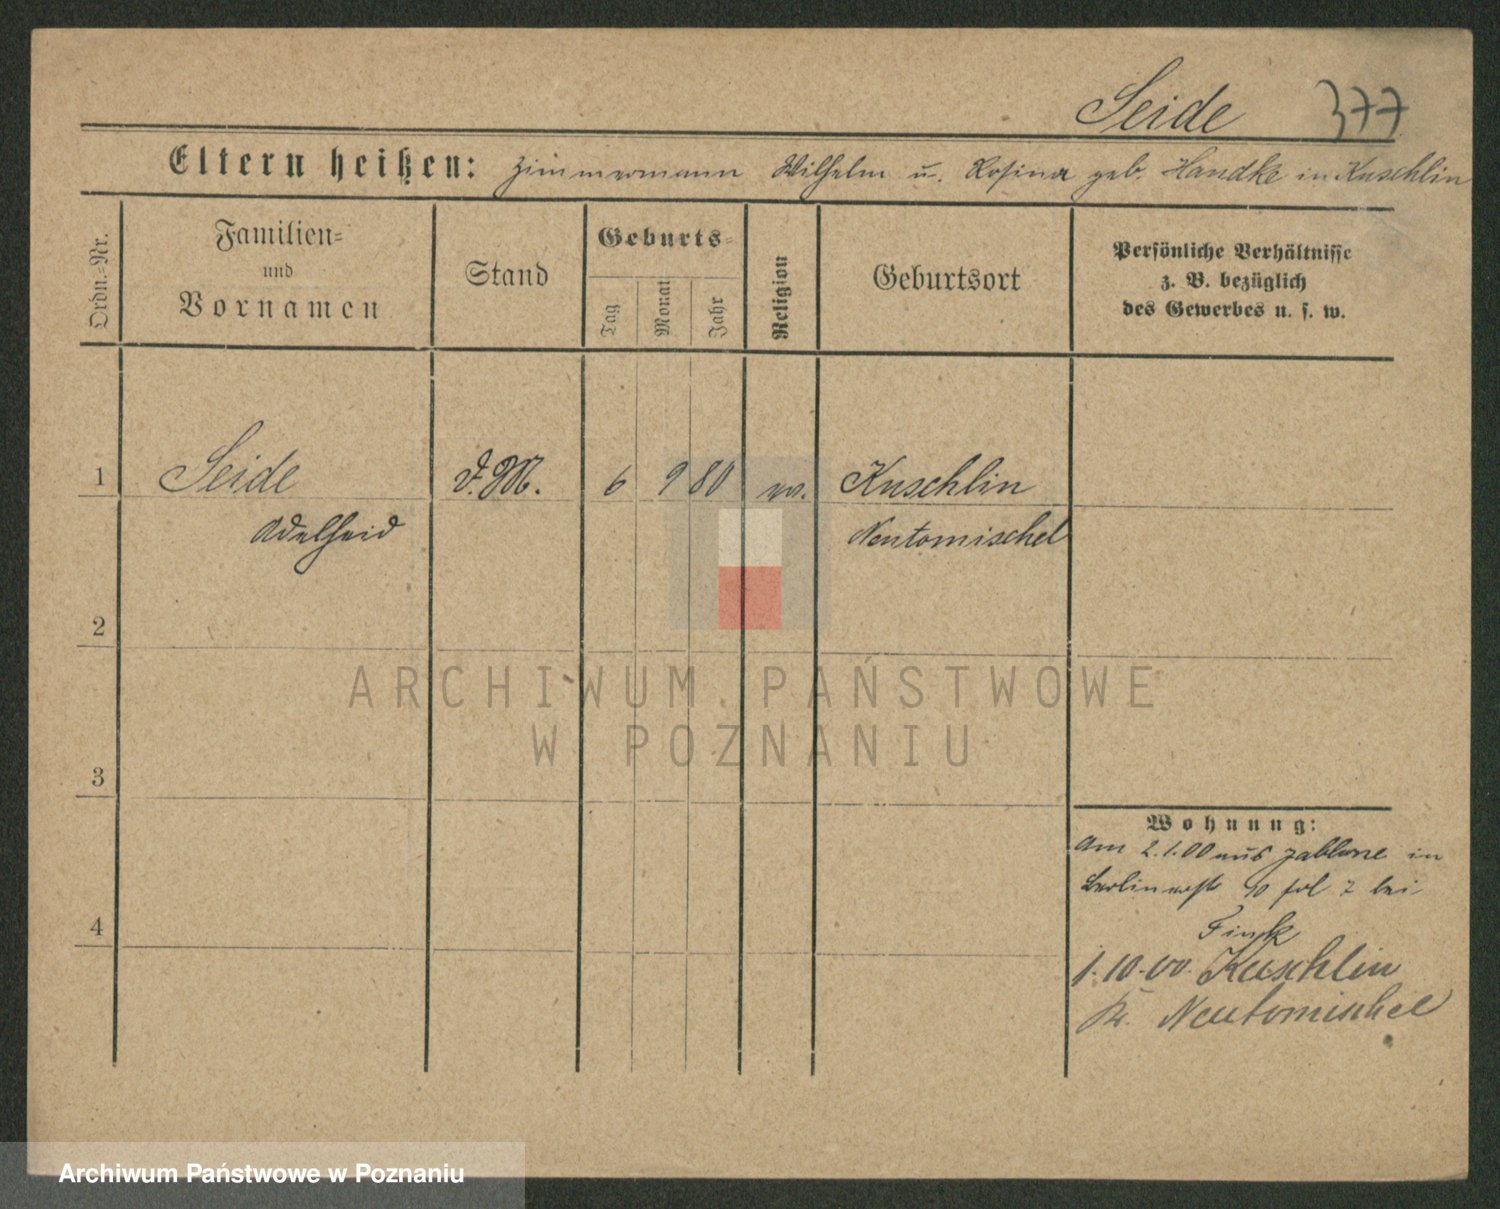 Seide 377
Eltern heißen: Zimmermann Wilhelm u. Rosina geb. Handke in Kuschlin
Ordn.-Nr.
Familien-
und
Vornamen
Stand
Geburts-
Tag
Monat
Jahr
Religion
Geburtsort
Persönliche Verhältnisse
z. B. bezüglich
des Gewerbes u. s. w.
1 Seide D.M. 6 9 80 ev. Kuschlin
Adelheid Neutomischel
2
3
4
ARCHIWUM PAŃSTWOWE
W POZNANIU
Wohnung:
Am 2.1.00 aus Jablone in
Berlinerstr 10 bei
Fink
1.10.00. Kuschlin
Kr. Neutomischel
Archiwum Państwowe w Poznaniu